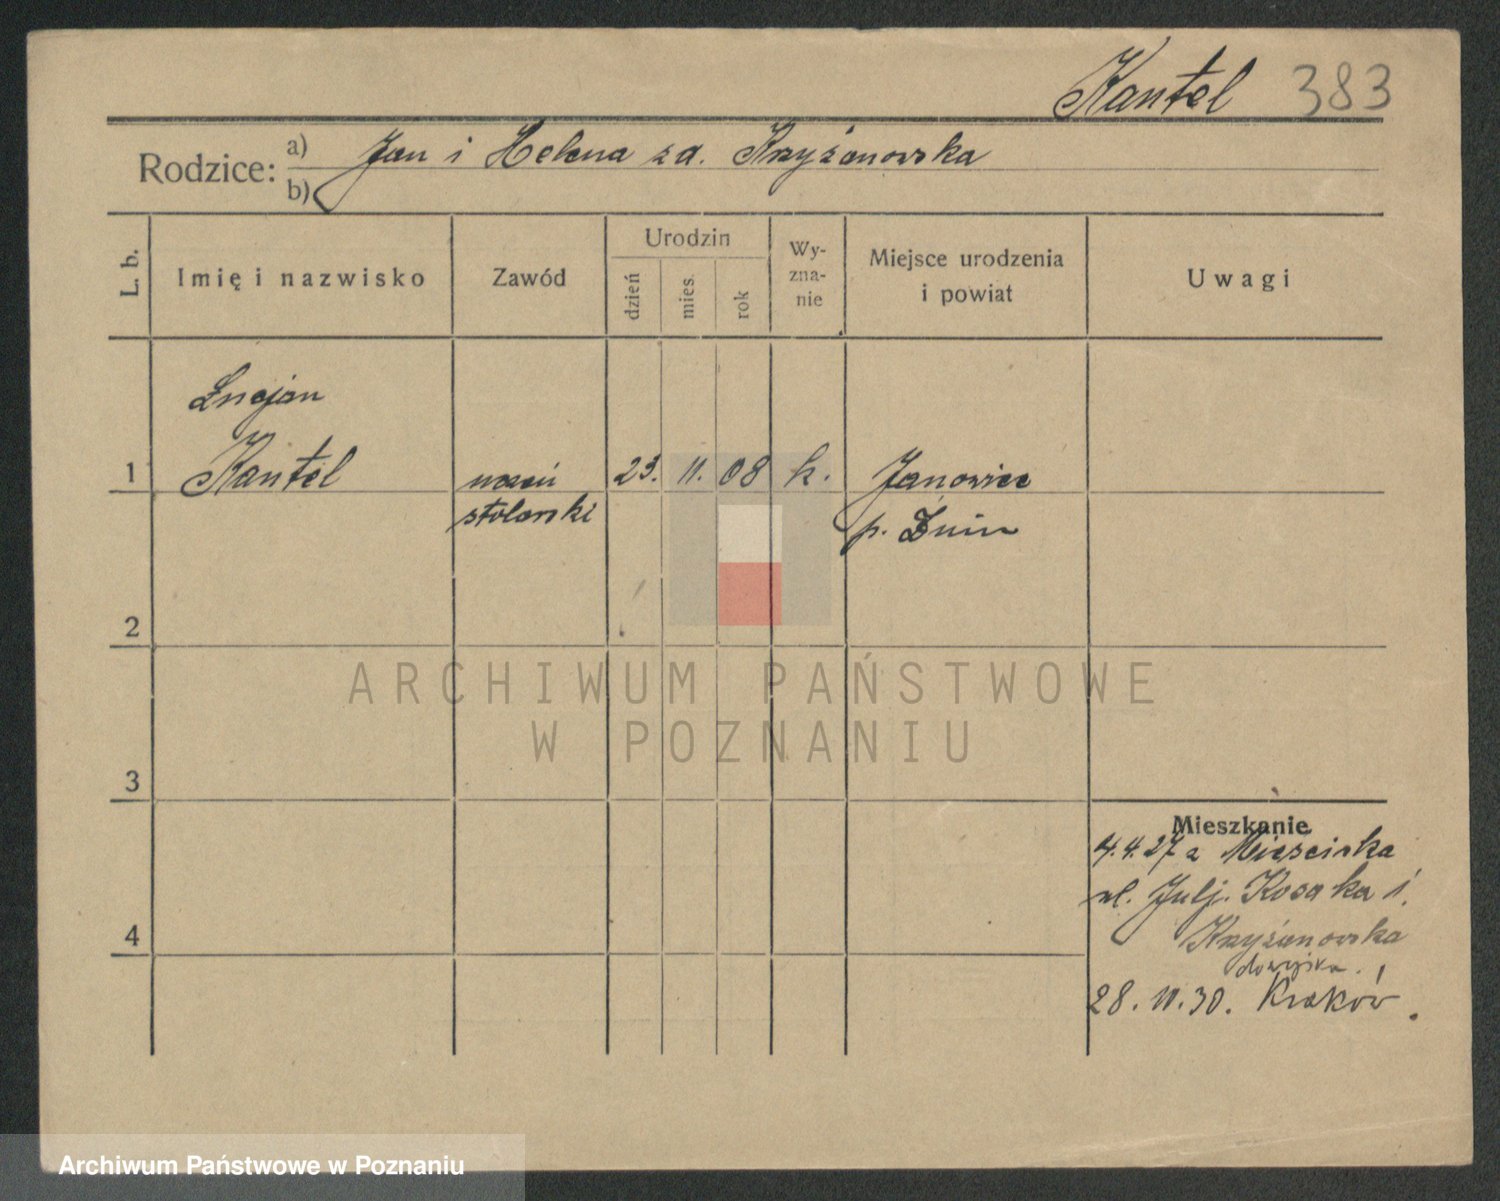 Kantel 383
Rodzice: a) Jan i Helena zd. Krzyżanowska
b)
L. b.
Imię i nazwisko
Zawód
Urodzin
dzień
mies.
rok
Wy-
zna-
nie
Miejsce urodzenia
i powiat
Uwagi
Lucjan
1 Kantel uczeń 23. 11. 08 k. Janowiec
stolarski p. Żnin
2
3
4
Mieszkanie
4.4.27 z Mieściska
ul. Julj. Kosaka 1.
Krzyżanowska
28. 11. 30. Kraków.
ARCHIWUM PAŃSTWOWE
W POZNANIU
Archiwum Państwowe w Poznaniu